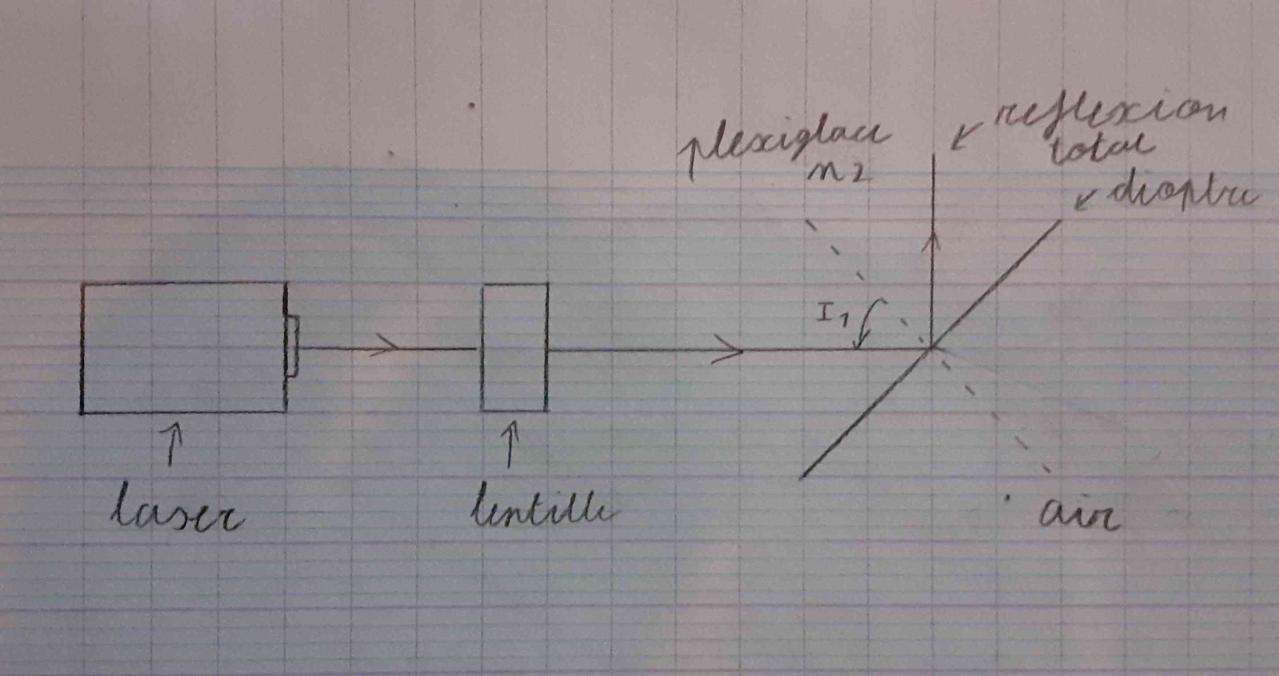 plexiglace
n2
reflexion
total
dioptre
I1
laser
lentille
air